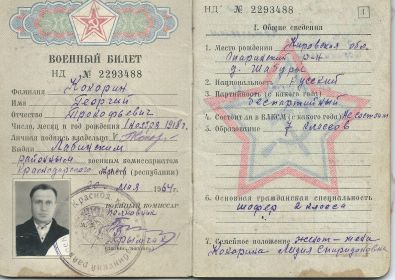 ВОЕННЫЙ БИЛЕТ
НД № 2293488
Фамилия Кокорин
Имя Георгий
Отчество Прокофьевич
Число, месяц и год рождения 1 ноября 1918 г.
Личная подпись владельца
Выдан Лабинским
районным военным комиссариатом
Краснодарского края (республики)
мая 1964 г.
Военный комиссар
полковник
НД № 2293488
1
I. Общие сведения
1. Место рождения Кировская обл.
Опаринский р-н
д. Шабуры
2. Национальность Русский
3. Партийность (с какого года)
беспартийный
4. Состоит ли в ВЛКСМ (с какого года) Не состоит
5. Образование 7 классов
6. Основная гражданская специальность
шофер 2 класса
7. Семейное положение женат - жена
Кокорина Лидия Спиридоновна